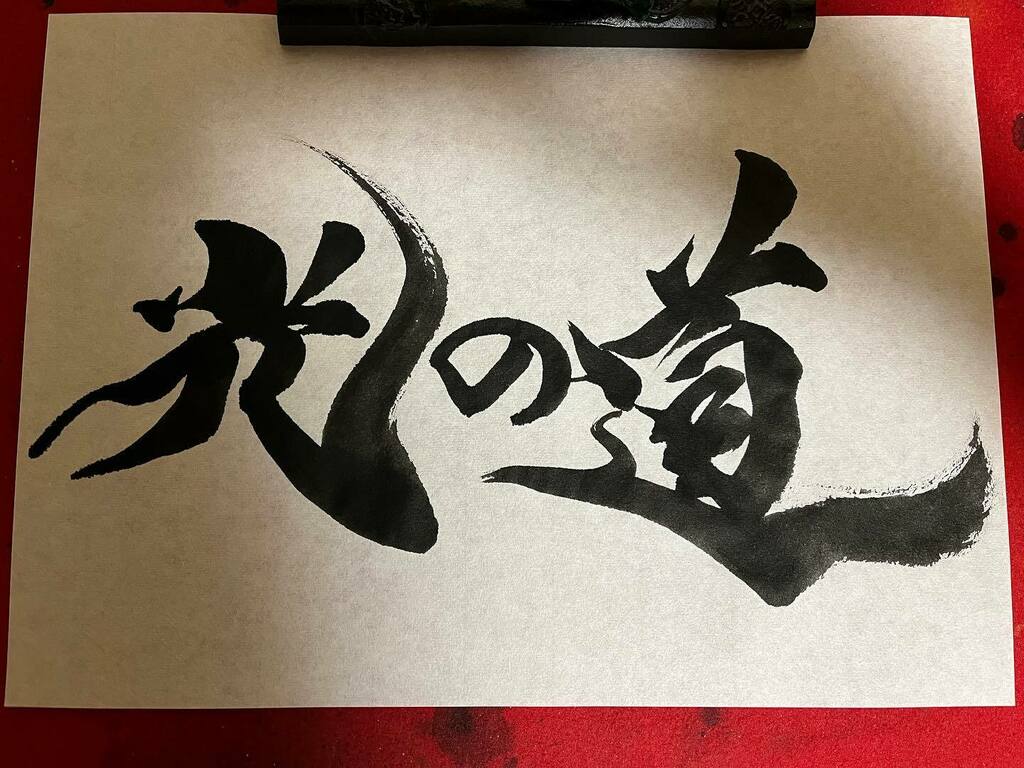 光の道